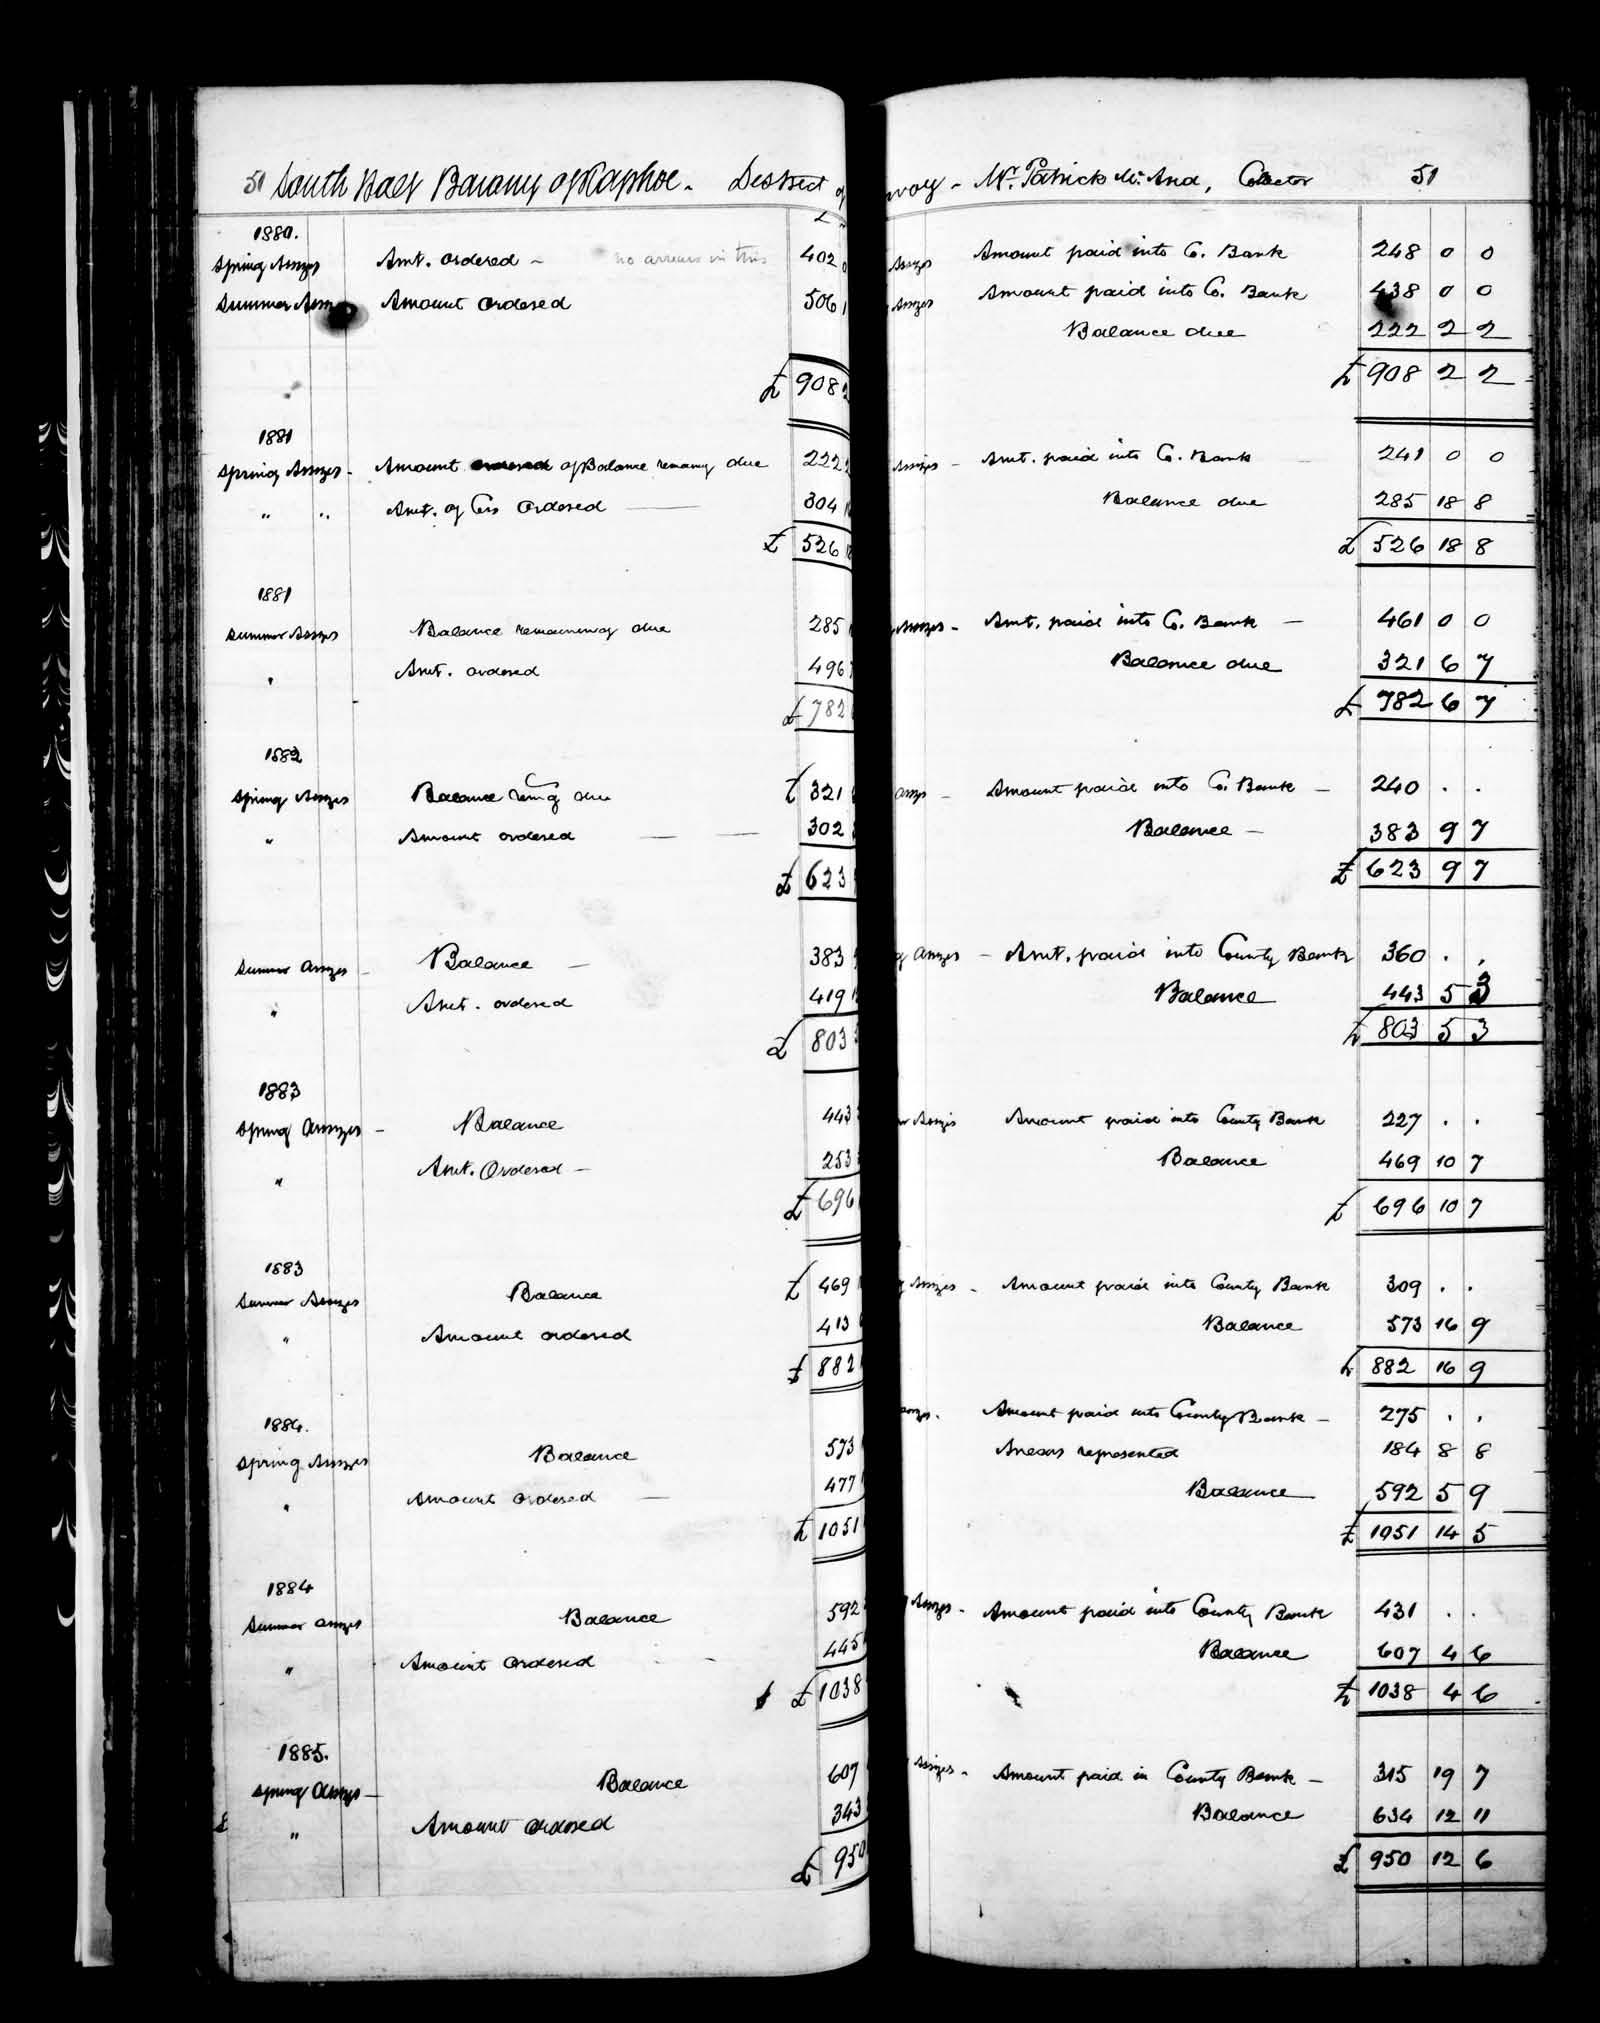 51 South Half Barony of Raphoe. District of
£
1880.
Spring Assizes Amt. ordered - no arrears in this 402 0
Summer Assizes Amount ordered 506 1
£ 908 2
1881
Spring Assizes - Amount of Balance remaing due 222 2
" " Amt. of Cess Ordered 304
£ 526 18
1881
Summer Assizes Balance remaining due 285
" Amt. ordered 496
£ 782
1882
Spring Assizes Balance remg due £ 321
" Amount ordered 302
£ 623
Summer Assizes - Balance - 383
" Amt. ordered 419
£ 803
1883
Spring Assizes - Balance 443
" Amt. Ordered - 253
£ 696
1883
Summer Assizes Balance £ 469
" Amount ordered 413
£ 882
1884.
Spring Assizes Balance 573
" Amount ordered - 477
£ 1051
1884
Summer Assizes Balance 592
" Amount ordered 445
£ 1038
1885.
Spring Assizes - Balance 607
" Amount ordered 343
£ 950
- Mr. Patrick Mc. Collector 51
Assizes Amount paid into Co. Bank 248 0 0
Assizes Amount paid into Co. Bank 438 0 0
Balance due 222 2 2
£ 908 2 2
Assizes - Amt. paid into Co. Bank 241 0 0
Balance due 285 18 8
£ 526 18 8
Assizes - Amt. paid into Co. Bank - 461 0 0
Balance due 321 6 7
£ 782 6 7
Assizes - Amount paid into Co. Bank - 240 . .
Balance - 383 9 7
£ 623 9 7
g Assizes - Amt. paid into County Bank 360 . .
Balance 443 5 3
£ 803 5 3
er Assizes Amount paid into County Bank 227 . .
Balance 469 10 7
£ 696 10 7
g Assizes - Amount paid into County Bank 309 . .
Balance 573 16 9
£ 882 16 9
Assizes. Amount paid into County Bank - 275 . .
Arrears represented 184 8 8
Balance 592 5 9
£ 1051 14 5
Assizes - Amount paid into County Bank 431 . .
Balance 607 4 6
£ 1038 4 6
Assizes - Amount paid in County Bank - 315 19 7
Balance 634 12 11
£ 950 12 6